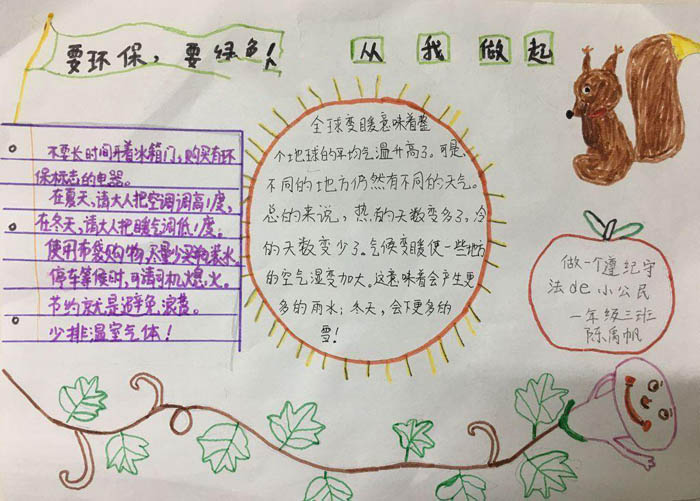 要环保，要绿色！
从我做起
不要长时间开着冰箱门，购买有环
保标志的电器。
在夏天，请大人把空调调高1度，
在冬天，请大人把暖气调低1度。
使用布袋购物，尽量少买瓶装水，
停车等候时，可请司机熄火。
节约就是避免浪费。
少排温室气体！
全球变暖意味着整
个地球的平均气温升高了。可是，
不同的地方仍然有不同的天气。
总的来说，热的天数变多了，冷
的天数变少了。气候变暖使一些地方
的空气湿度加大。这意味着会产生更
多的雨水；冬天，会下更多的
雪！
做一个遵纪守
法de小公民
一年级三班
陈禹帆